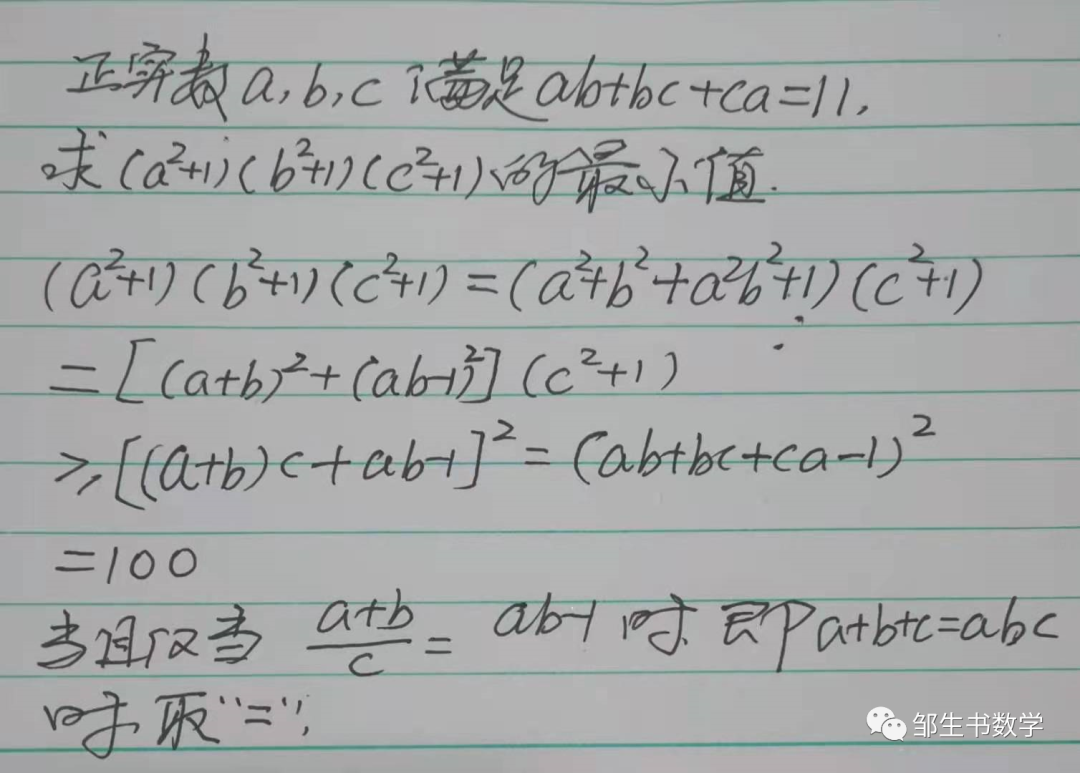 正实数a,b,c满足ab+bc+ca=11,
求(a²+1)(b²+1)(c²+1)的最小值.
(a²+1)(b²+1)(c²+1)=(a²+b²+a²b²+1)(c²+1)
=[(a+b)²+(ab-1)²](c²+1)
≥[(a+b)c+ab-1]²=(ab+bc+ca-1)²
=100
当且仅当 \frac{a+b}{c}=ab-1时即a+b+c=abc
时取"=",
邹生书数学